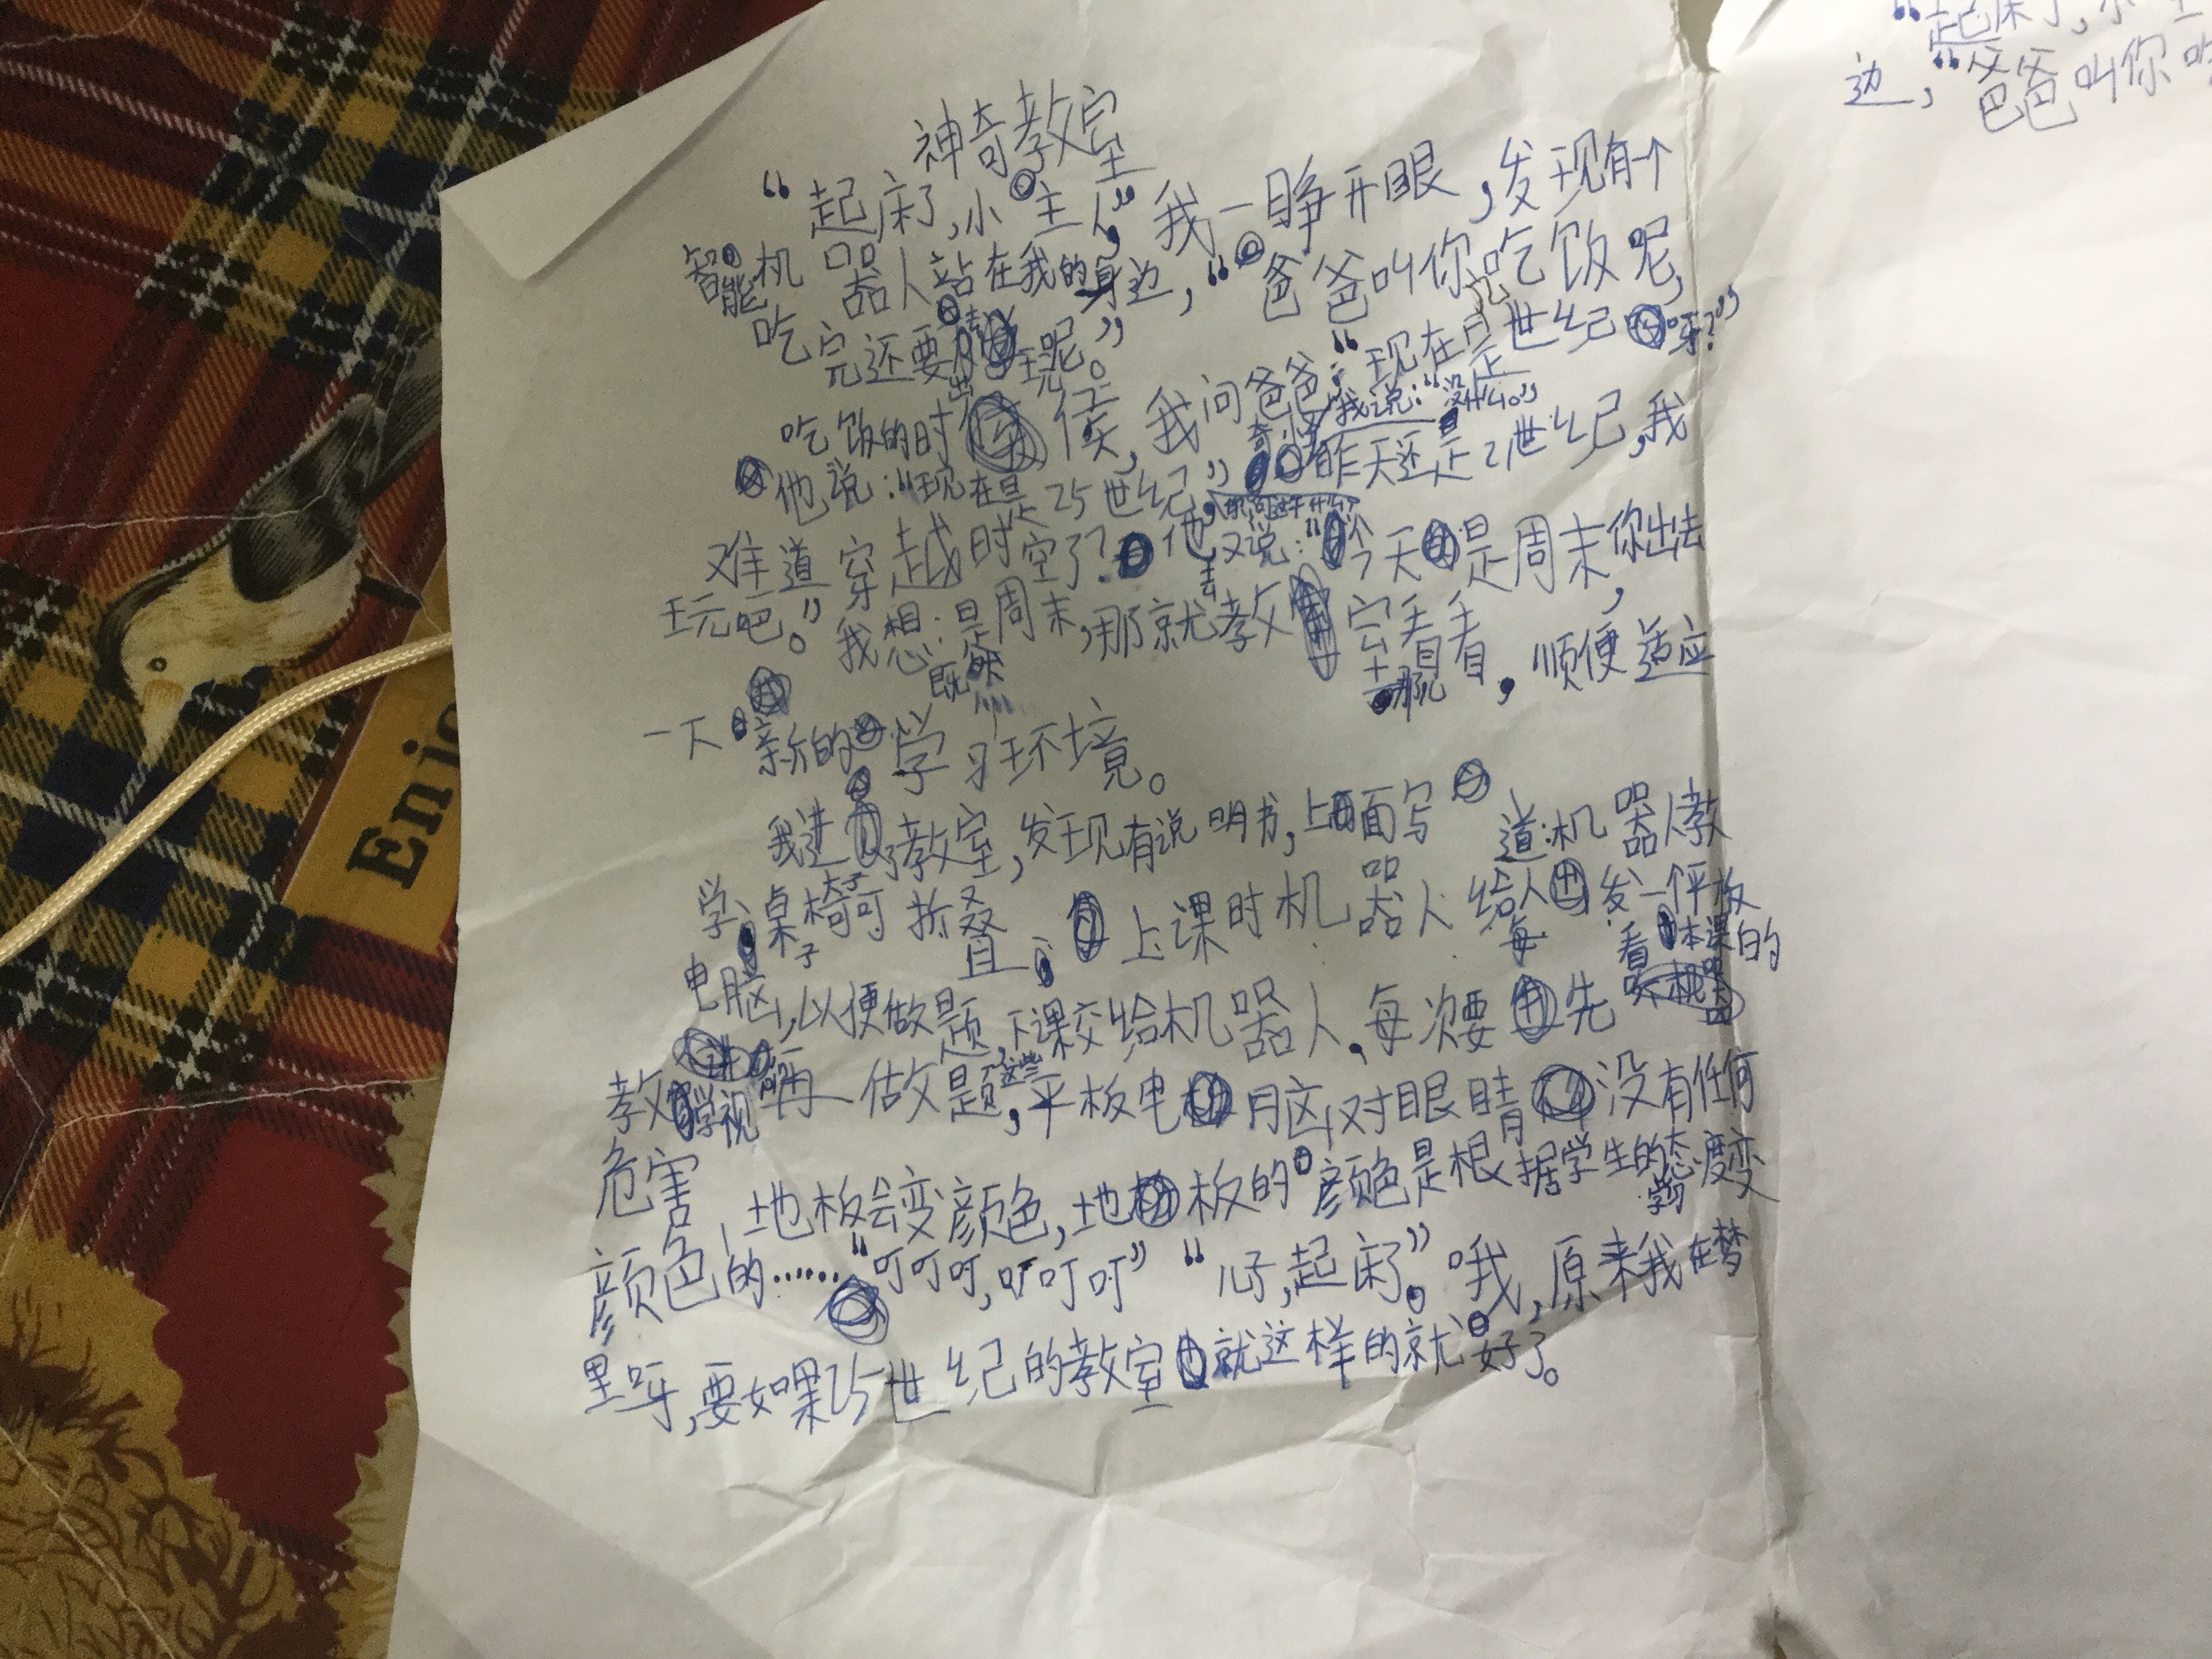 神奇教室
“起床了,小主人”,我一睁开眼,发现有一个
智能机器人站在我的身边,“爸爸叫你吃饭呢,
吃完还要出去玩呢。”
吃饭的时候,我问爸爸:“现在是几世纪呀?”
他说:“现在是25世纪”,奇怪昨天还是21世纪,我
你问这干什么?
我说:“没什么。”
难道穿越时空了?他又说:“今天是周末,你出去
玩吧。”我想:既然是周末,那就去教室那儿看看,顺便适应
一下新的学习环境。
我进了教室,发现有说明书,上面写道:机器人教
学、桌子椅子可折叠、上课时机器人给每人发一个平板
电脑,以便做题,下课交给机器人,每次要先看本课的
教学视频再做题,这些平板电脑对眼睛没有任何
危害,地板会变颜色,地板的颜色是根据学生的学习态度变
颜色的……“叮叮叮,叮叮叮”“儿子,起床了。”哦,原来我在梦
里呀,要如果25世纪的教室就这样的就好了。
“起床了,小主
边,“爸爸叫你吃
Enic